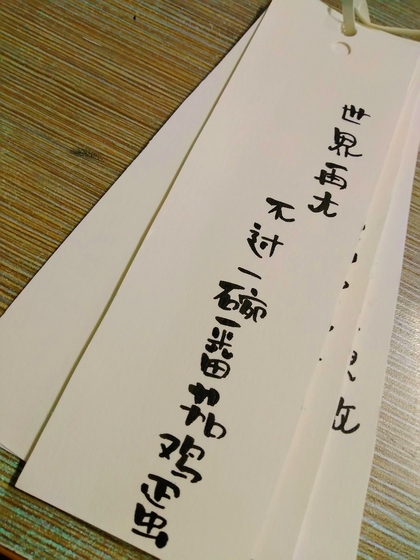 世界再大
不过一碗番茄鸡蛋